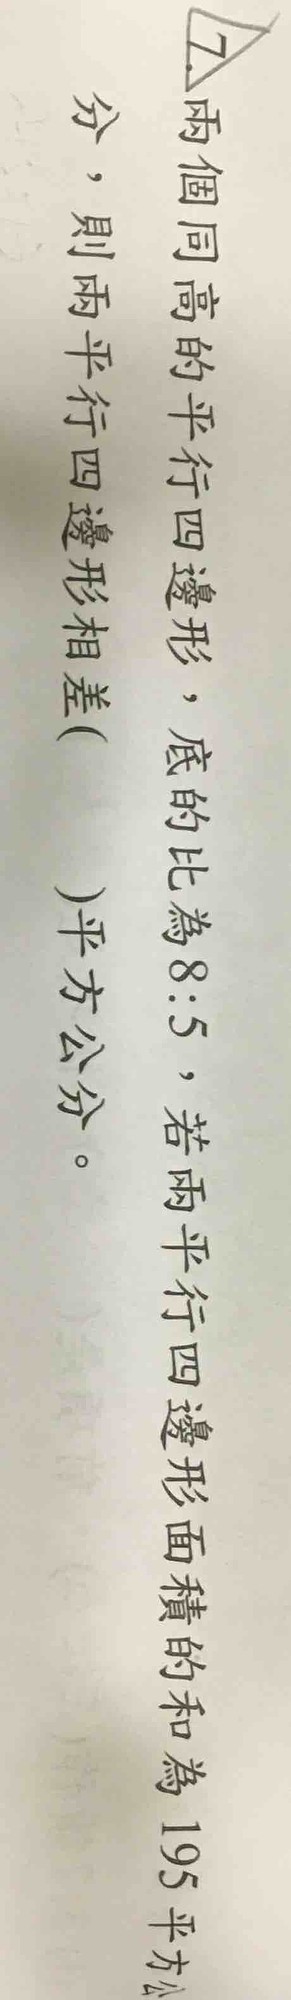 7.兩個同高的平行四邊形，底的比為8:5，若兩平行四邊形面積的和為195平方公
分，則兩平行四邊形相差(　　)平方公分。